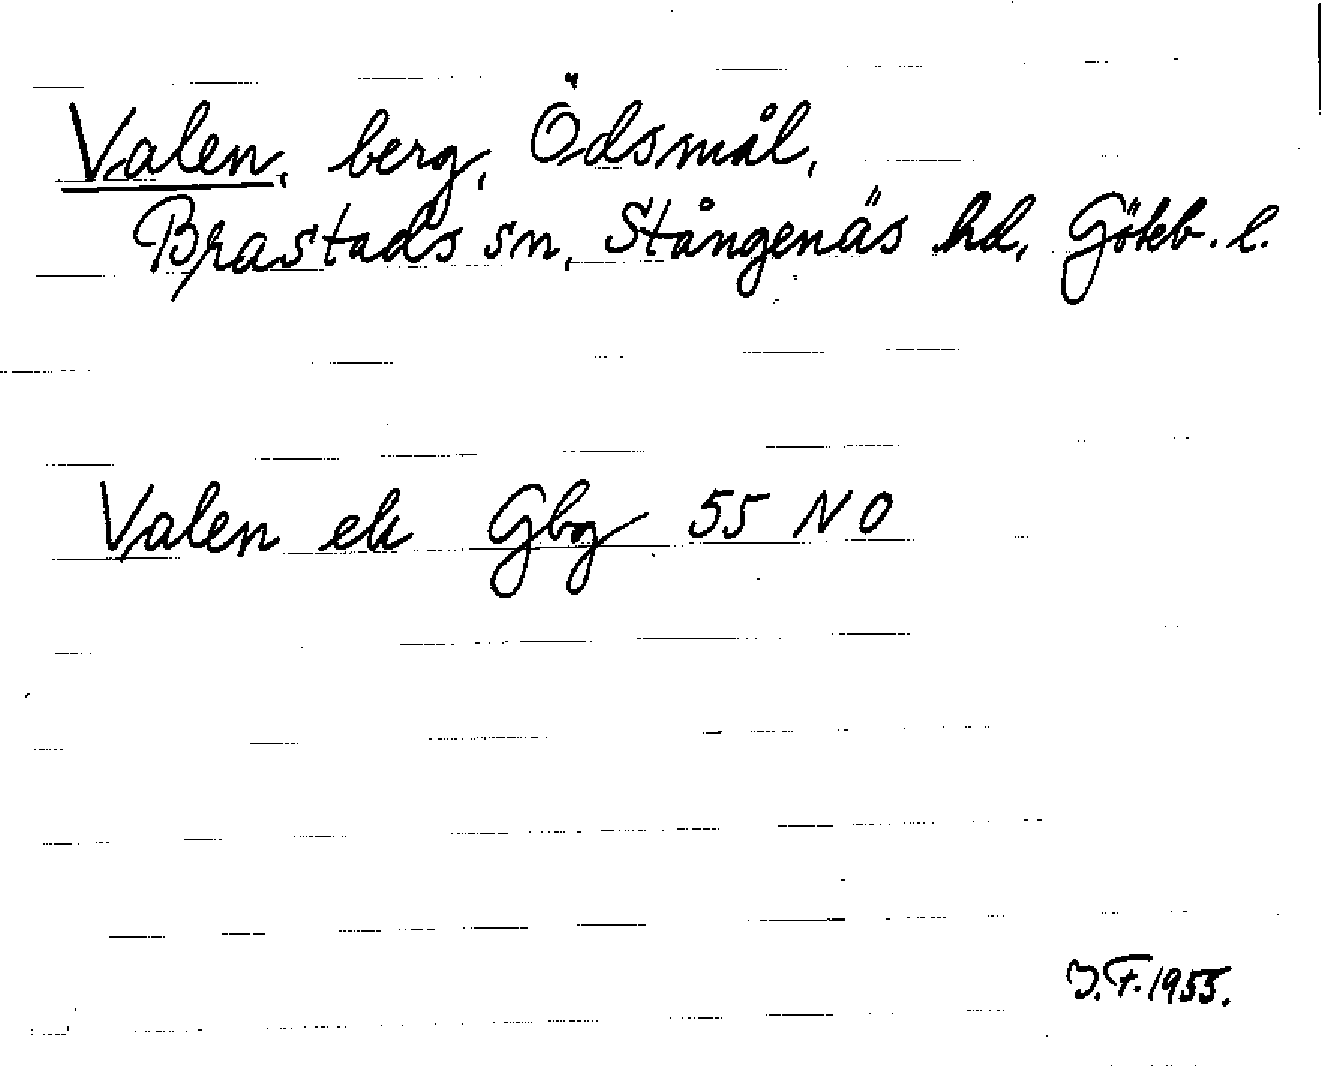 Valen, berg, Ödsmål,
Brastads sn, Stångenäs hd, Göteb. l.
Valen ek Gbg 55 NO
J.F. 1955.